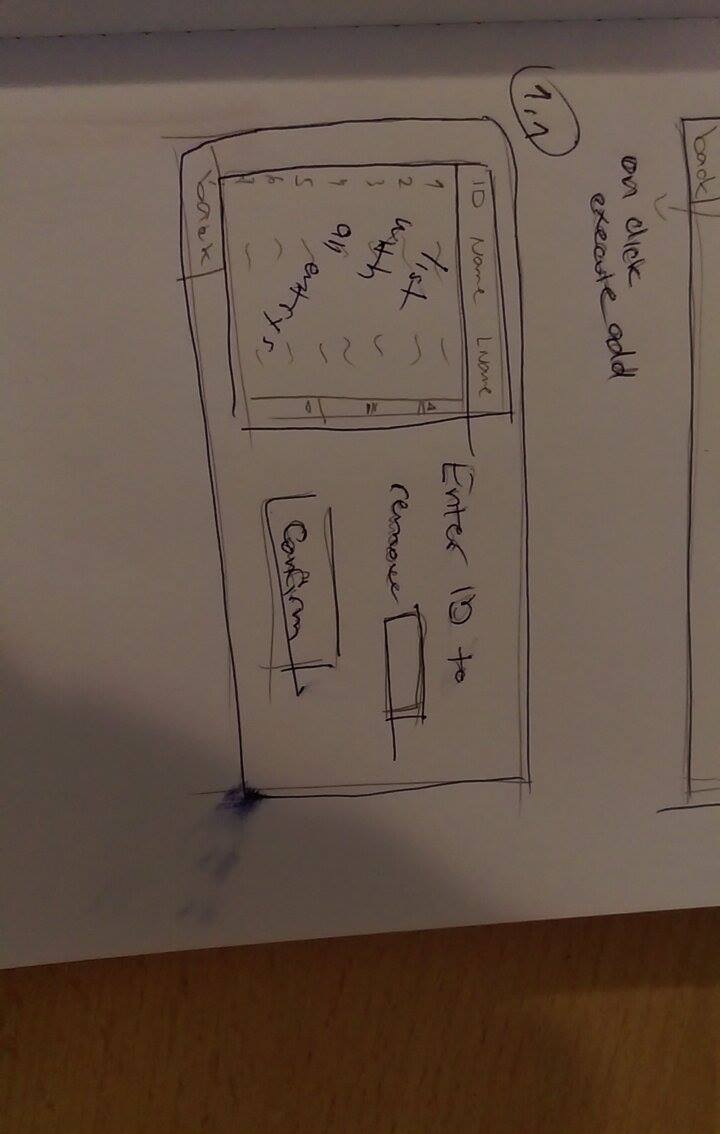 back
on click
execute add
1.1
ID Name LName
1
2
3
4
5
6
7
list
with
all
entrys
Enter ID to
remove
Confirm
back